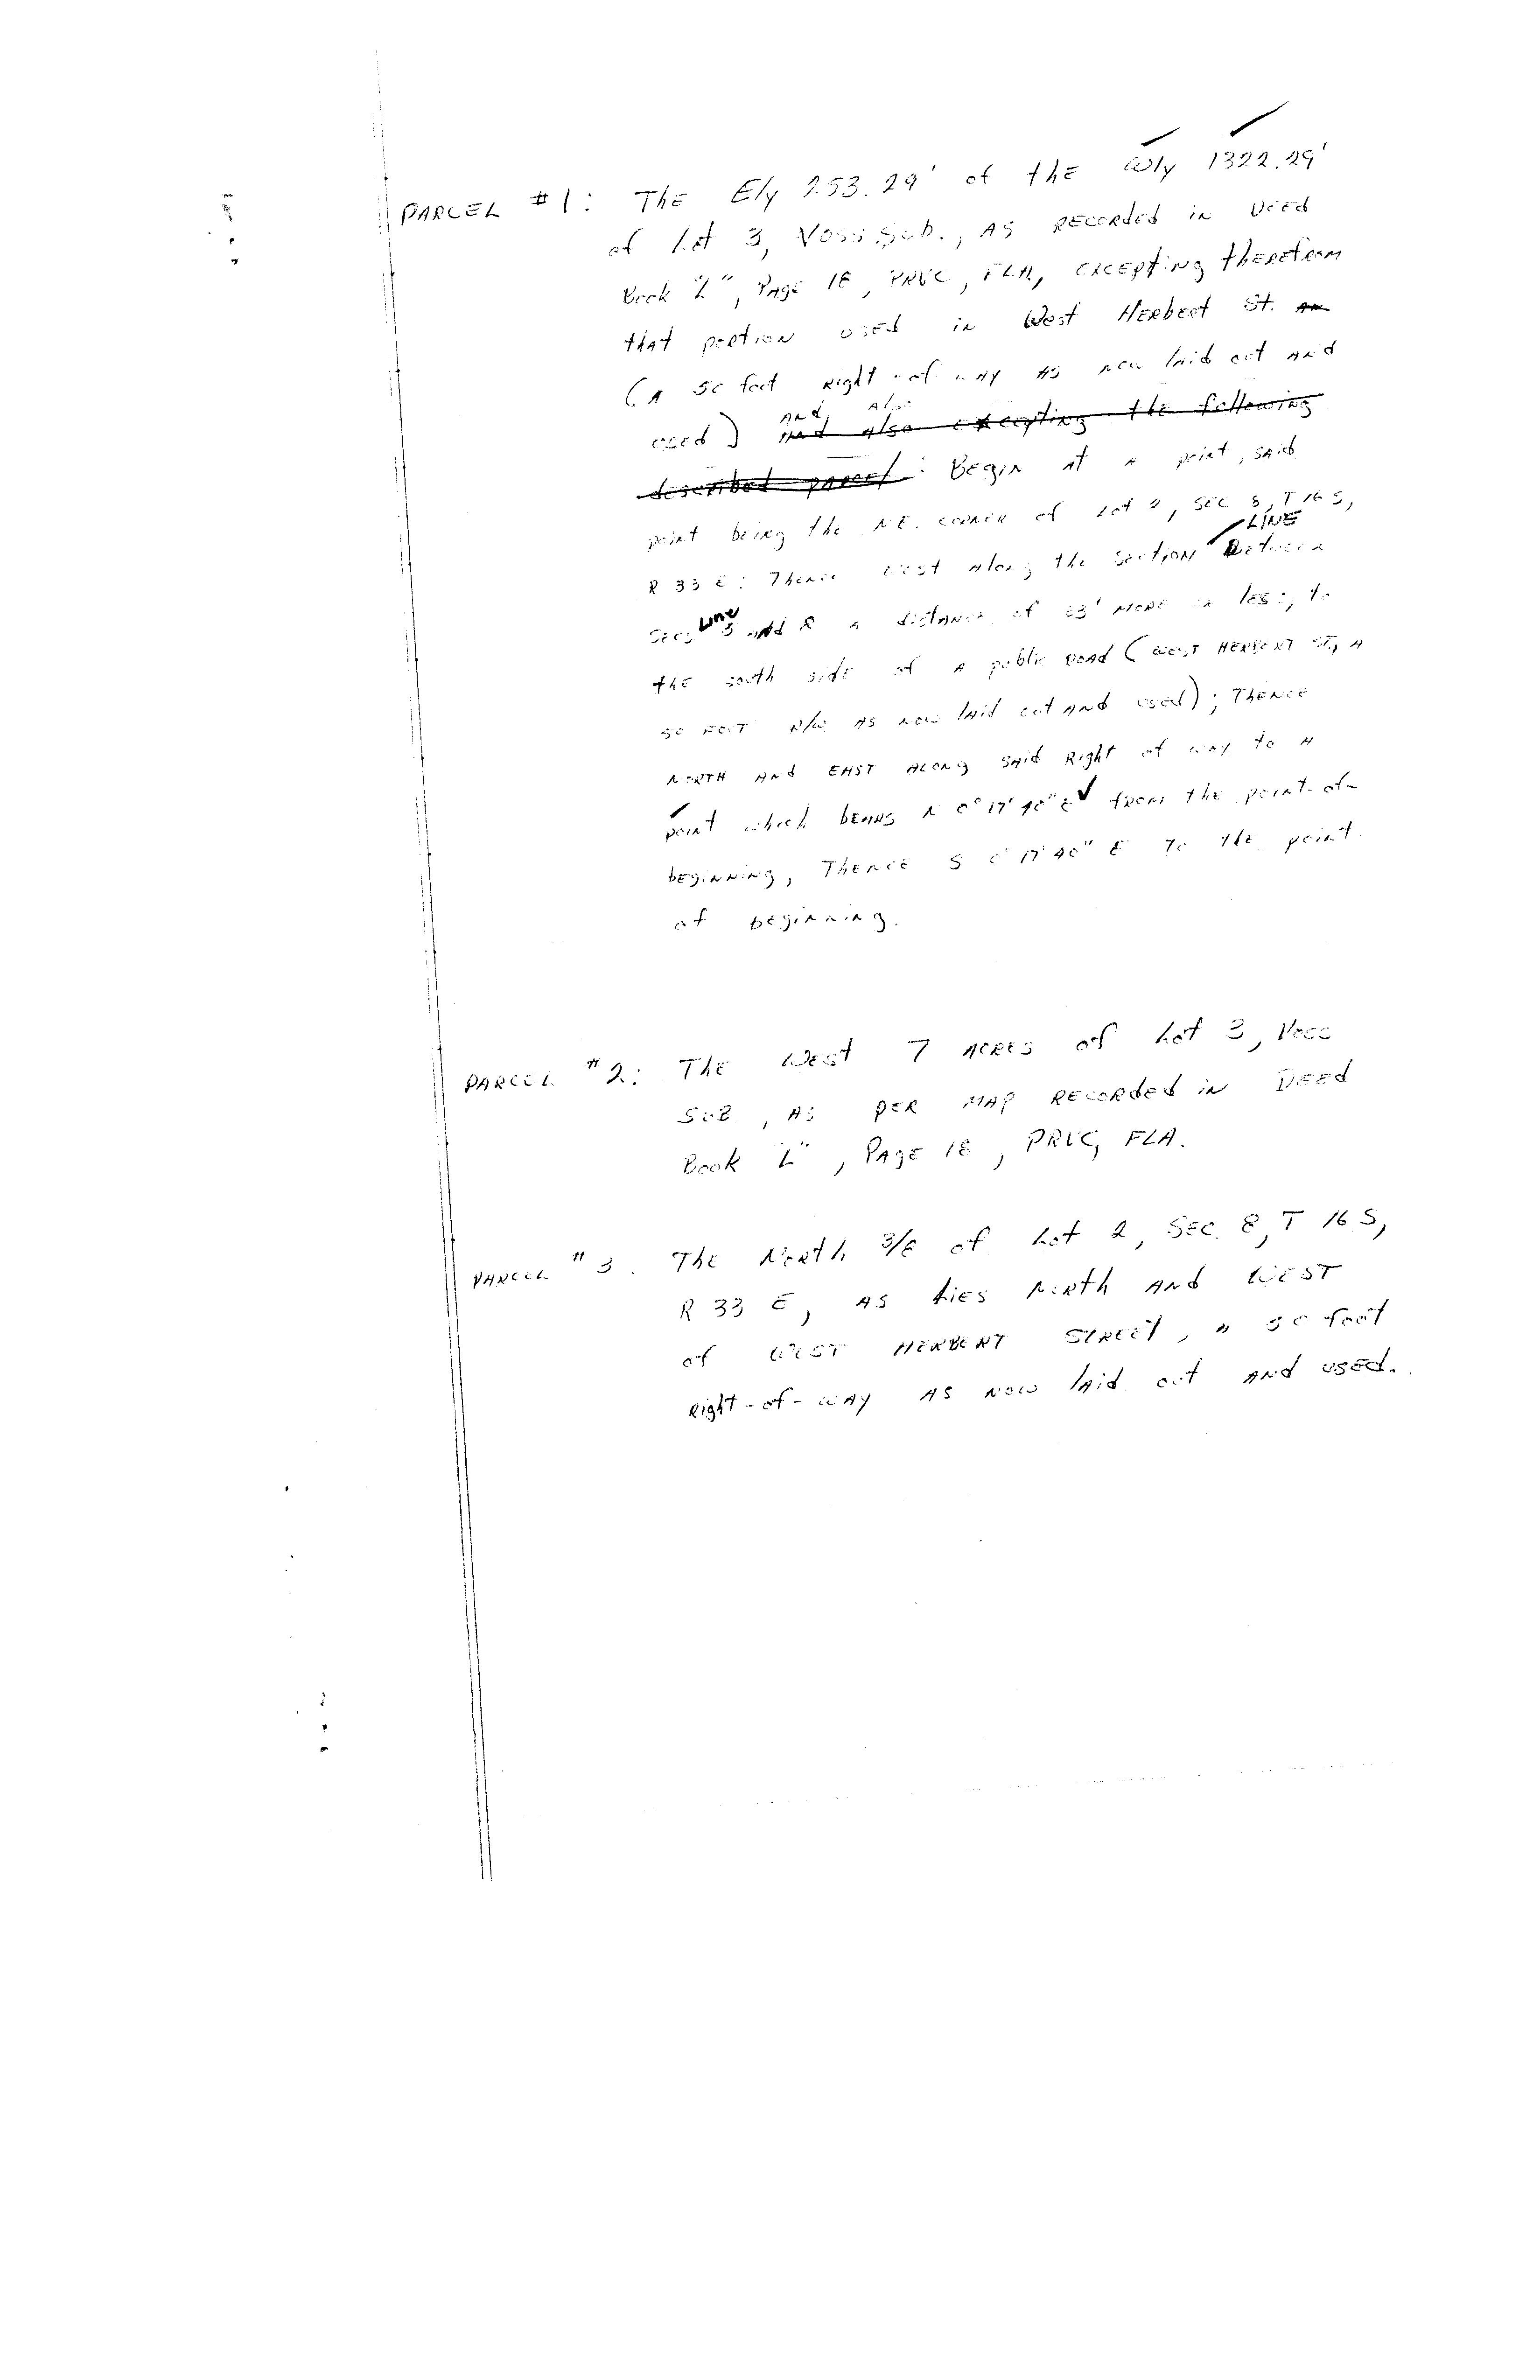 PARCEL #1: The Ely 253.29' of the Wly 1322.29'
of Lot 3, Voss Sub., as recorded in Deed
Book "L", Page 18, PRVC, FLA, excepting therefrom
that portion used in West Herbert St. an
(a 50 foot right-of-way as now laid out and
and, also
used) and also excepting the following
described parcel: Begin at a point, said
point being the N.E. corner of Lot 2, Sec 8, T 16 S,
LINE
R 33 E: Thence West along the section between
Line
Secs 5 and 8 a distance of 23' more or less, to
the south side of a public road (West Herbert St, a
50 foot R/W as now laid out and used); Thence
North and East along said right of way to a
point which bears N 0° 17' 40" E from the point-of-
beginning, Thence S 0° 17' 40" E to the point
of beginning.
PARCEL #2: The West 7 acres of Lot 3, Voss
Sub., as per map recorded in Deed
Book "L", Page 18, PRVC, FLA.
PARCEL #3. The North 3/8 of Lot 2, Sec. 8, T 16 S,
R 33 E, as lies North and West
of West Herbert Street, a 50 foot
right-of-way as now laid out and used.